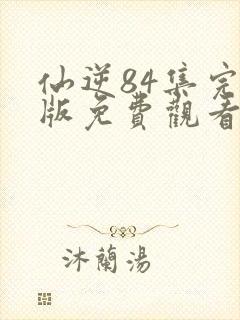 仙逆84集完
版免費觀看
沐蘭湯